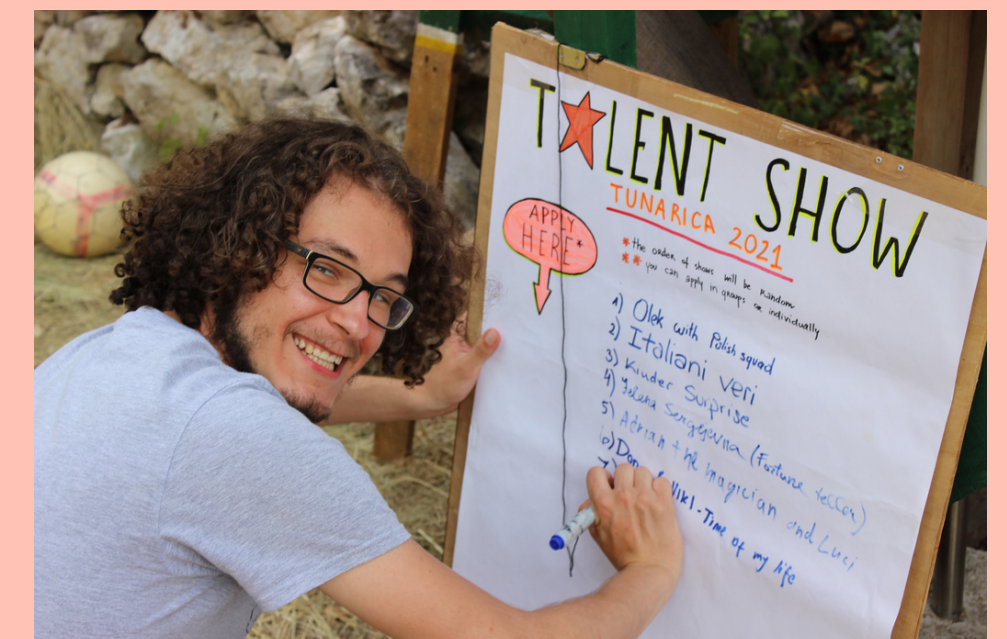 T★LENT SHOW
TUNARICA 2021
APPLY
HERE*
*the order of shows will be random
** you can apply in groups or individually
1) Olek with Polish squad
2) Italiani veri
3) Kinder Surprise
4) Jelena Sergejevna (Fortune teller)
5) Adrian the magician and Luci
6) & Niki - Time of my life
7)